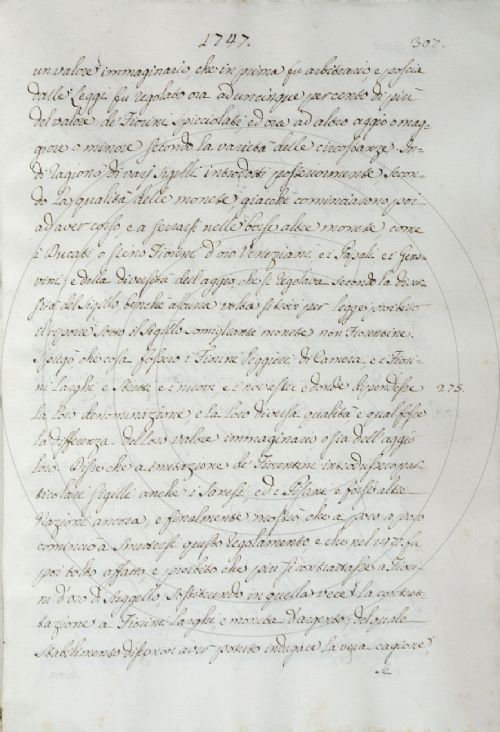 1747.
307.
un valore immaginario, che in prima fu arbitrario, e poscia
dalle Leggi fu regolato ora ad un cinque per cento di più
del valore de Fiorini spicciolati, ed ora ad altro aggio o mag-
giore o minore secondo la varietà delle circostanze. In-
di ragionò di varj sigilli introdotti posteriormente, secon-
do la qualità delle monete, giacchè cominciarono poi
ad aver corso, e a serrarsi nelle borse altre monete come
i Ducati o sieno Fiorini d'oro Veneziani, e i Papali e i Geno-
vini, e della diversità dell'aggio, che si regolava secondo la diver-
sità del sigillo, benchè alcuna volta si fosse per legge proibito
il riporre sotto il sigillo somiglianti monete non Fiorentine.
Spiegò che cosa fossero i Fiorini leggieri di Camera, e i Fiori-
ni larghi e stretti e i nuovi e i novestri e donde dipendesse
275.
la loro denominazione, e la loro diversa qualità e qual fosse
la differenza del loro valore immaginario o sia dell'aggio
loro. Disse che a imitazione de' Fiorentini introdussero par-
ticolari sigilli anche i Sanesi, ed i Pisani e forse altre
Nazioni ancora, e finalmente mostrò che a poco a poco
cominciò a smettersi questo regolamento e che nel fu
poi tolto affatto, e proibito che più si contrattasse a Fiori-
ni d'oro di suggello sostituendo in quella vece la contrat-
tazione a Fiorini larghi, e monete d'argento, del quale
stabilimento disse non aver potuto indagare la vera cagione,